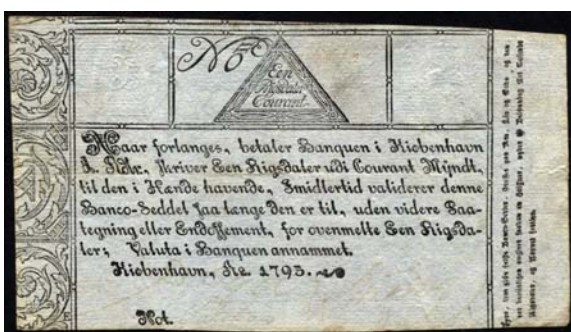 No
Een
Rigsdaler
Courant
Naar forlanges, betaler Banquen i Kiøbenhavn
1. Rdlr, skriver Een Rigsdaler udi Courant Mÿndt,
til den i Hænde havende, Imidlertid validerer denne
Banco-Seddel saa længe den er til, uden videre Paa-
tegning eller Endossement, for ovenmelte Een Rigsda-
ler; Valuta i Banquen annammet.
Kiøbenhavn, Ao. 1793.
Not.